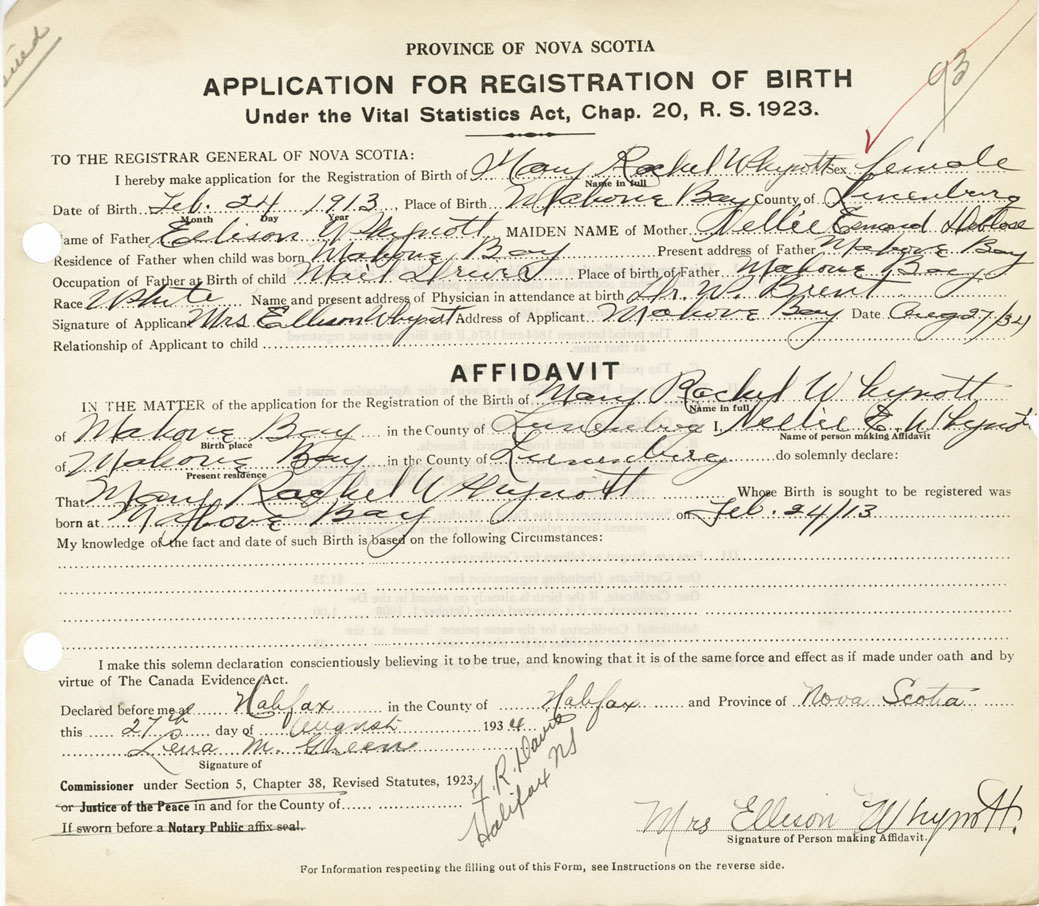 93
PROVINCE OF NOVA SCOTIA
APPLICATION FOR REGISTRATION OF BIRTH
Under the Vital Statistics Act, Chap. 20, R. S. 1923.
TO THE REGISTRAR GENERAL OF NOVA SCOTIA:
I hereby make application for the Registration of Birth of Mary Rachel Whynott Sex female
Name in full
Date of Birth Feb. 24 1913, Place of Birth Mahone Bay County of Lunenburg
Month Day Year
Name of Father Ellison Whynott MAIDEN NAME of Mother Nellie
Residence of Father when child was born Mahone Bay Present address of Father Mahone Bay
Occupation of Father at Birth of child Mail Driver Place of birth of Father Mahone Bay
Race White Name and present address of Physician in attendance at birth Dr. W. Brent
Signature of Applicant Mrs. Ellison Whynot Address of Applicant Mahone Bay Date Aug 27/34
Relationship of Applicant to child
AFFIDAVIT
IN THE MATTER of the application for the Registration of the Birth of Mary Rachel Whynott
Name in full
of Mahone Bay in the County of Lunenburg I, Nellie E. Whynott
Birth place Name of person making Affidavit
of Mahone Bay in the County of Lunenburg do solemnly declare:
Present residence
That Mary Rachel Whynott Whose Birth is sought to be registered was
born at Mahone Bay on Feb. 24/13
My knowledge of the fact and date of such Birth is based on the following Circumstances:
I make this solemn declaration conscientiously believing it to be true, and knowing that it is of the same force and effect as if made under oath and by
virtue of The Canada Evidence Act.
Declared before me at Halifax in the County of Halifax and Province of Nova Scotia
this 27th day of August 1934
Lena M. Greene
Signature of
Commissioner under Section 5, Chapter 38, Revised Statutes, 1923,
or Justice of the Peace in and for the County of
If sworn before a Notary Public affix seal.
R. Davis
Halifax NS
Mrs Ellison Whynott.
Signature of Person making Affidavit.
For Information respecting the filling out of this Form, see Instructions on the reverse side.